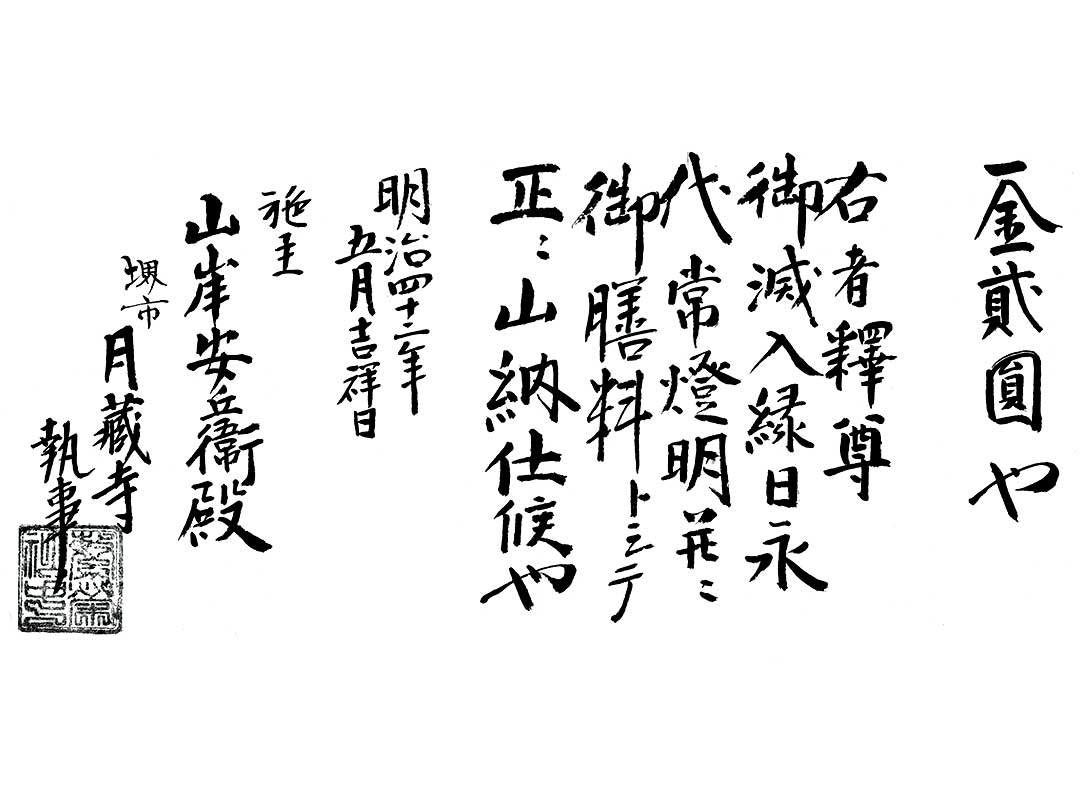 一金貳圓也
右者釋尊
御滅入縁日永
代常燈明并ニ
御膳料トシテ
正ニ山納仕候也
明治四十二年
五月吉祥日
施主
山岸安兵衛殿
堺市
月藏寺
執事